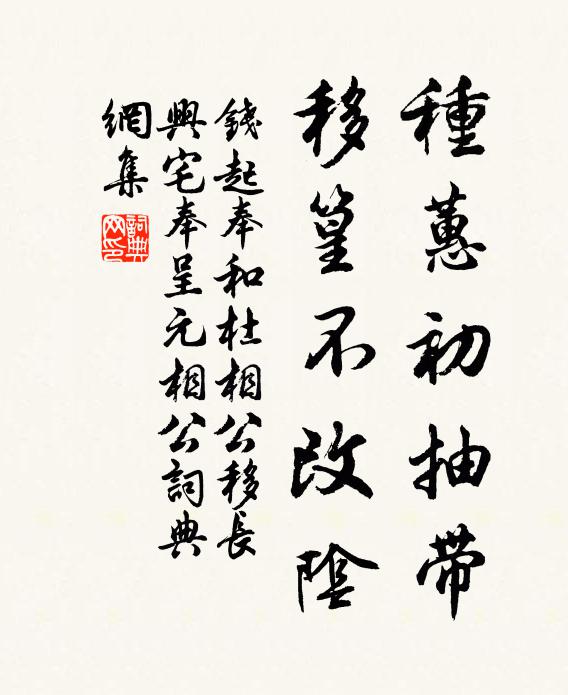 種蕙初抽帶
移篁不改陰
錢起奉和杜相公移長
興宅奉呈元相公詞典
網集
詞典
网印